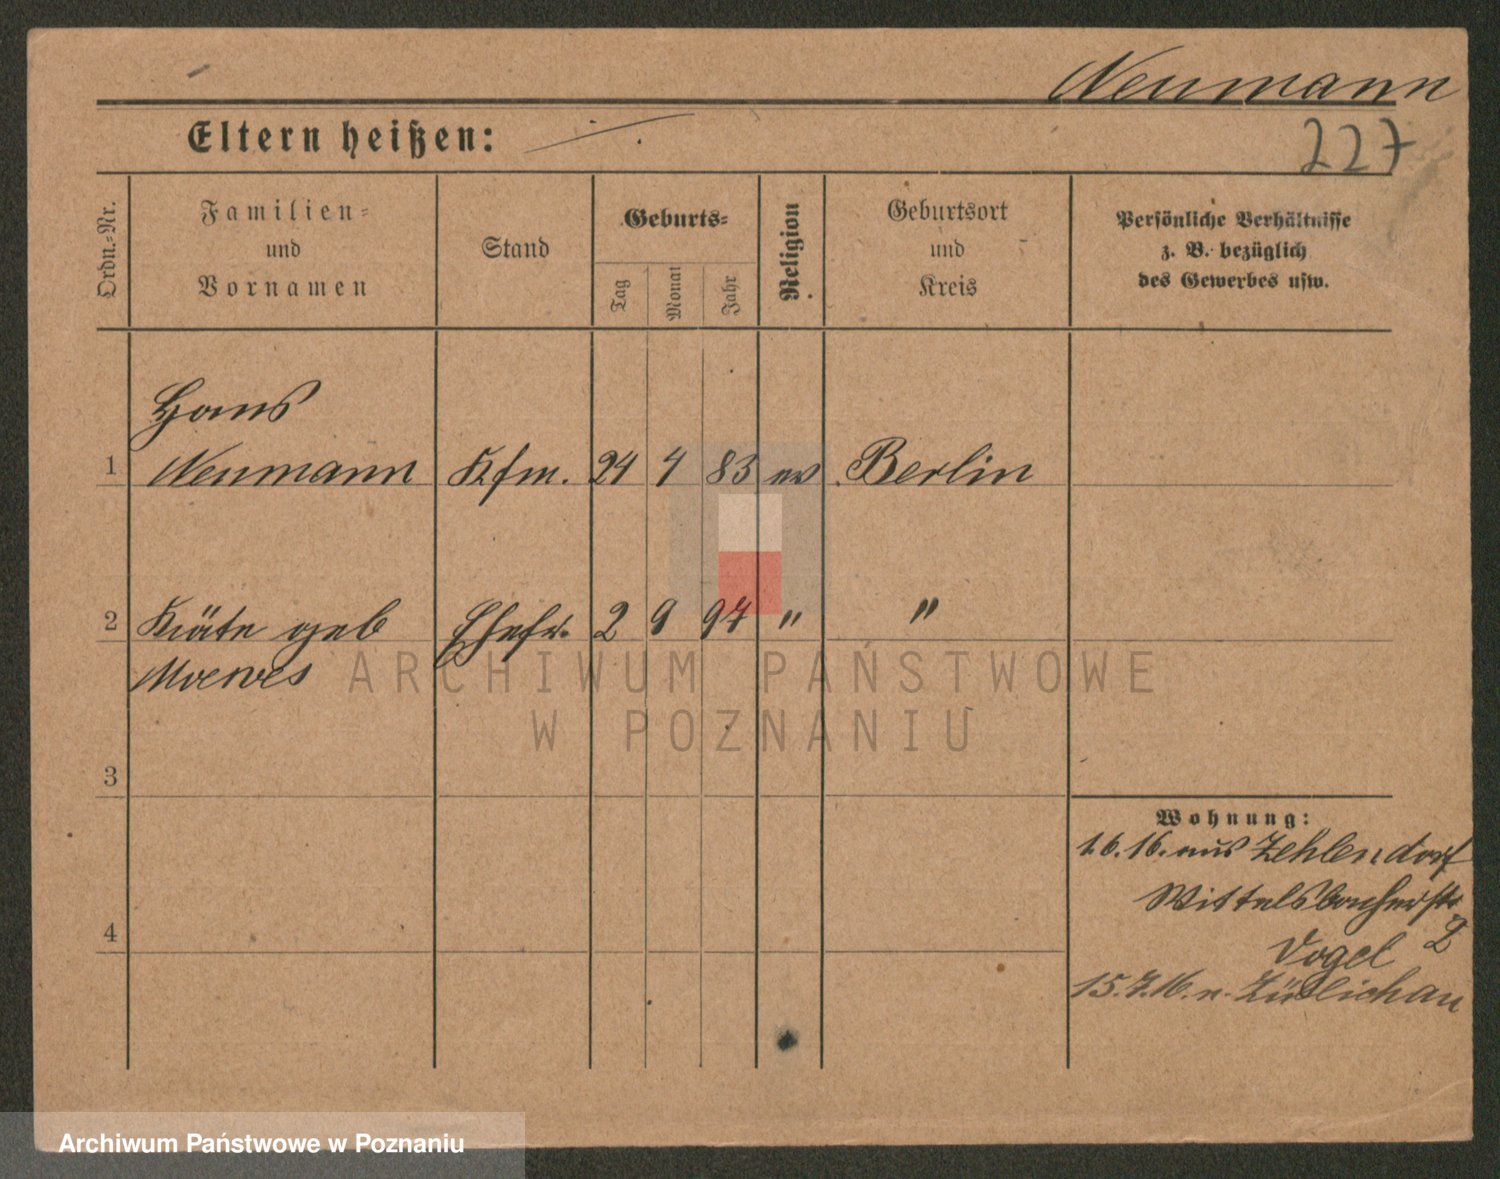 Neumann
Eltern heißen:
227
Ordn.-Nr.
Familien-
und
Vornamen
Stand
Geburts-
Tag
Monat
Jahr
Religion
Geburtsort
und
Kreis
Persönliche Verhältnisse
z. B. bezüglich
des Gewerbes usw.
Hans
1 Neumann Kfm. 24 4 83 ev Berlin
2 Käte geb Ehefr. 2 9 97 " "
Moewes
ARCHIWUM PAŃSTWOWE
W POZNANIU
3
Wohnung:
1.6.16. aus Zehlendorf
Wittelsbacherstr
2
4
Vogel
15.7.16. n. Züllichau
Archiwum Państwowe w Poznaniu